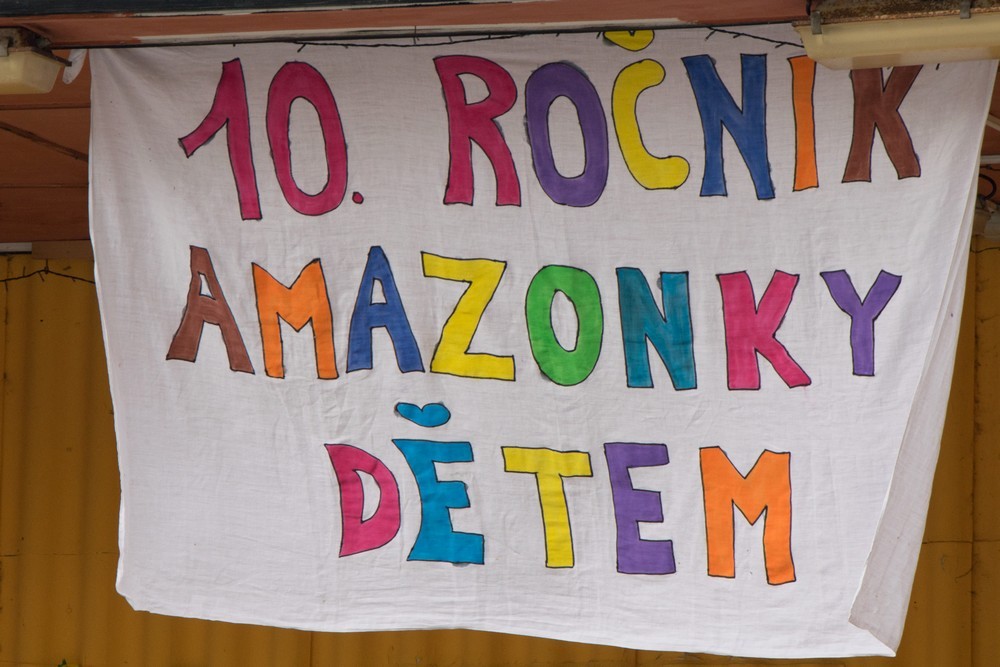 10. ROČNIK
AMAZONKY
DĚTEM